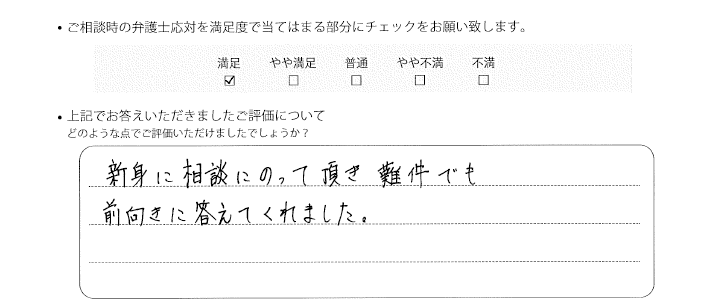 ・ご相談時の弁護士応対を満足度で当てはまる部分にチェックをお願い致します。
満足 やや満足 普通 やや不満 不満
☑ ☐ ☐ ☐ ☐
・上記でお答えいただきましたご評価について
どのような点でご評価いただけましたでしょうか？
新身に相談にのって頂き 難件でも
前向きに答えてくれました。